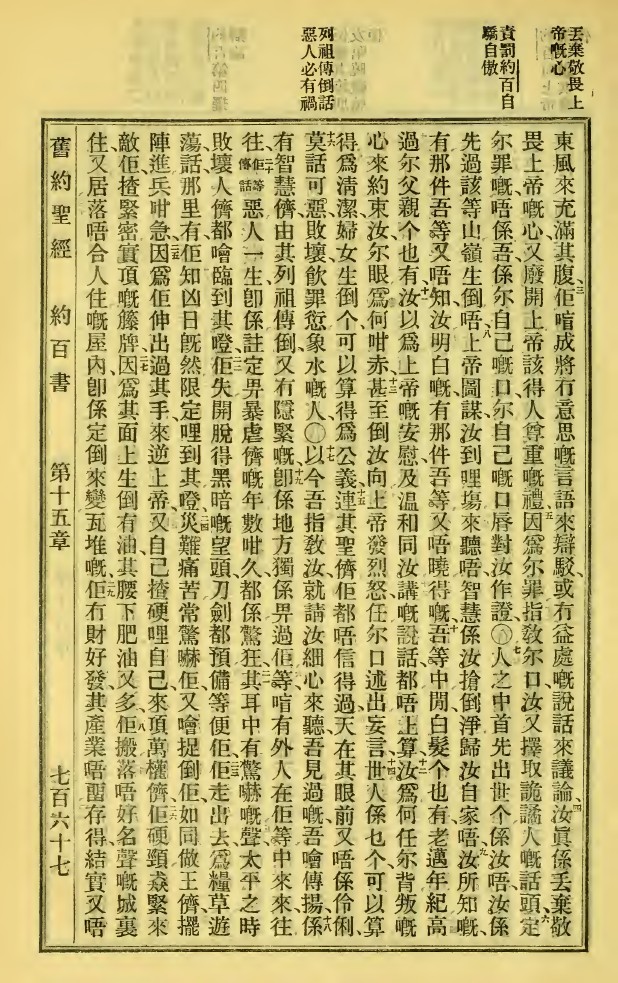 丟棄敬畏上
帝嘅心
責罰約百自
驕自傲
列祖傳倒話
惡人必有禍
東風來充滿其腹佢啱成將冇意思嘅言語來辯駁或有益處嘅說話來議論汝眞係丟棄敬
畏上帝嘅心又廢開上帝該得人尊重嘅禮因爲尔罪指敎尔口汝又擇取詭譎人嘅話頭定
尔罪嘅唔係吾係尔自己嘅口尔自己嘅口唇對汝作證〇人之中首先出世个係汝唔汝係
先過該等山嶺生倒唔上帝圖謀汝到哩塲來聽唔智慧係汝搶倒淨歸汝自家唔汝所知嘅
有那件吾等又唔知汝明白嘅有那件吾等又唔曉得嘅吾等中間白髮个也有老邁年紀高
過尔父親个也有汝以爲上帝嘅安慰及温和同汝講嘅說話都唔上算汝爲何任尔背叛嘅
心來約束汝尔眼爲何咁赤甚至倒汝向上帝發烈怒任尔口述出妄言世人係乜个可以算
得爲淸潔婦女生倒个可以算得爲公義連其聖儕佢都唔信得過天在其眼前又唔係伶俐
莫話可惡敗壞飲罪愆象水嘅人〇以今吾指敎汝就請汝細心來聽吾見過嘅吾噲傳揚係
有智慧儕由其列祖傳倒又冇隱緊嘅卽係地方獨係畀過佢等啱有外人在佢等中來來往
往佢等傳話惡人一生卽係註定畀暴虐儕嘅年數咁久都係驚狂其耳中有驚嚇嘅聲太平之時
敗壞人儕都噲臨到其噔佢失開脫得黑暗嘅望頭刀劍都預備等便佢佢走出去爲糧草遊
蕩話那里有佢知凶日旣然限定哩到其噔災難痛苦常驚嚇佢又噲捉倒佢如同做王儕擺
陣進兵咁急因爲佢伸出過其手來逆上帝又自己揸硬哩自己來頂萬權儕佢硬頸猋緊來
敵佢揸緊密實頂嘅籐牌因爲其面上生倒有油其腰下肥油又多佢搬落唔好名聲嘅城裏
住又居落唔合人住嘅屋內卽係定倒來變瓦堆嘅佢冇財好發其產業唔噲存得結實又唔
舊約聖經 約百書 第十五章 七百六十七